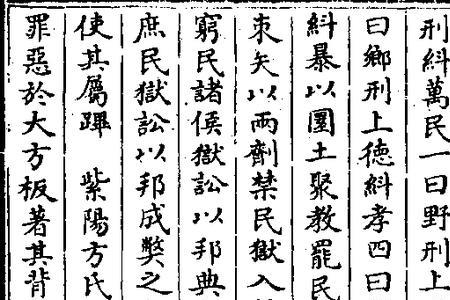 刑糾萬民一曰野刑上
曰鄉刑上德糾孝四曰
糾暴以圜土聚教罷民
束矢以兩劑禁民獄入
窮民諸侯獄訟以邦典
庶民獄訟以邦成獘之
使其屬蹕 紫陽方氏
罪惡於大方板著其背